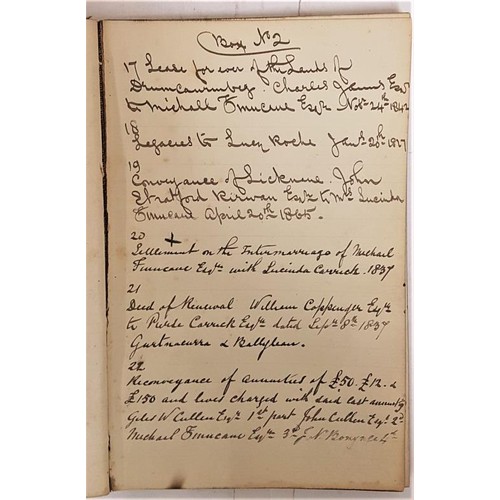 Box No 2
17 Lease for ever of the Lands of
Charles James Esqr
to Michael Finucane Esqre Novr 24th 1842
18
Legacies to Lucy Roche Jany 25th 1817
19
Conveyance of Lickneue John
Stratford Kirwan Esqre to Mrs Lucinda
Finucane April 20th 1865.
20
Settlement on the Intermarriage of Michael
Finucane Esqre with Lucinda Carrick 1837
21
Deed of Renewal William Coppenger Esqre
to Pierce Carrick Esqre dated Sepr 8th 1837
Gurtnacurra & Ballylean.
22
Reconveyance of annuities of £50. £12. &
£150 and lives charged with said last annuity
Giles W Cullen Esqre 1st part John Cullen Esqr 2d
Michael Finucane Esqre 3rd J N 4th